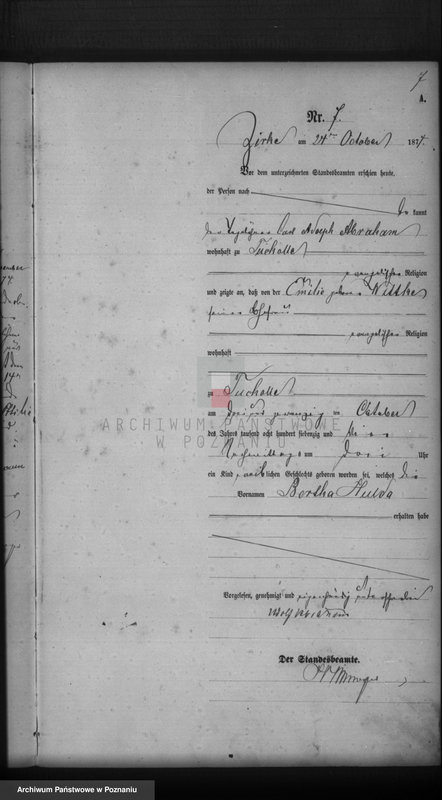 7
A.
Nr. 7.
Zirke am 24ten October 1874.
Vor dem unterzeichneten Standesbeamten erschien heute,
der Person nach
be kannt
der Tagelöhner Carl Adolph Abraham
wohnhaft zu Tucholle
evangelischer Religion
und zeigte an, daß von der Emilie geborne Wittke
seiner Ehefrau
evangelischer Religion
wohnhaft
zu Tucholle
am drei und zwanzig ten October
des Jahres tausend acht hundert siebenzig und vier
Nachmittags um drei Uhr
ein Kind weiblichen Geschlechts geboren worden sei, welches die
Vornamen Bertha Hulda
erhalten habe
Vorgelesen, genehmigt und eigenhändig unterschrieben
Adolf Abraham
Der Standesbeamte.
ARCHIWUM PAŃSTWOWE
W POZNANIU
Archiwum Państwowe w Poznaniu